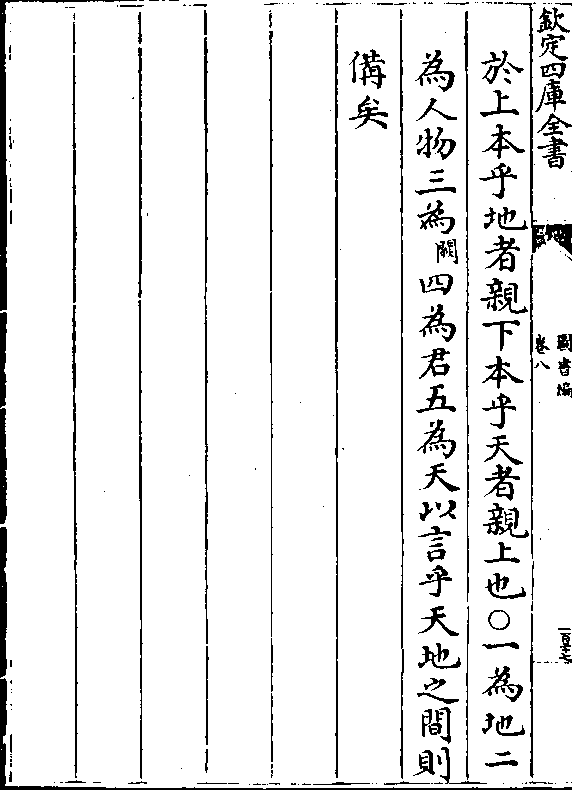 欽定四庫全書
圖書編
卷八
百十七
於上本乎地者親下本乎天者親上也○一為地二
為人物三為闕四為君五為天以言乎天地之間則
備矣